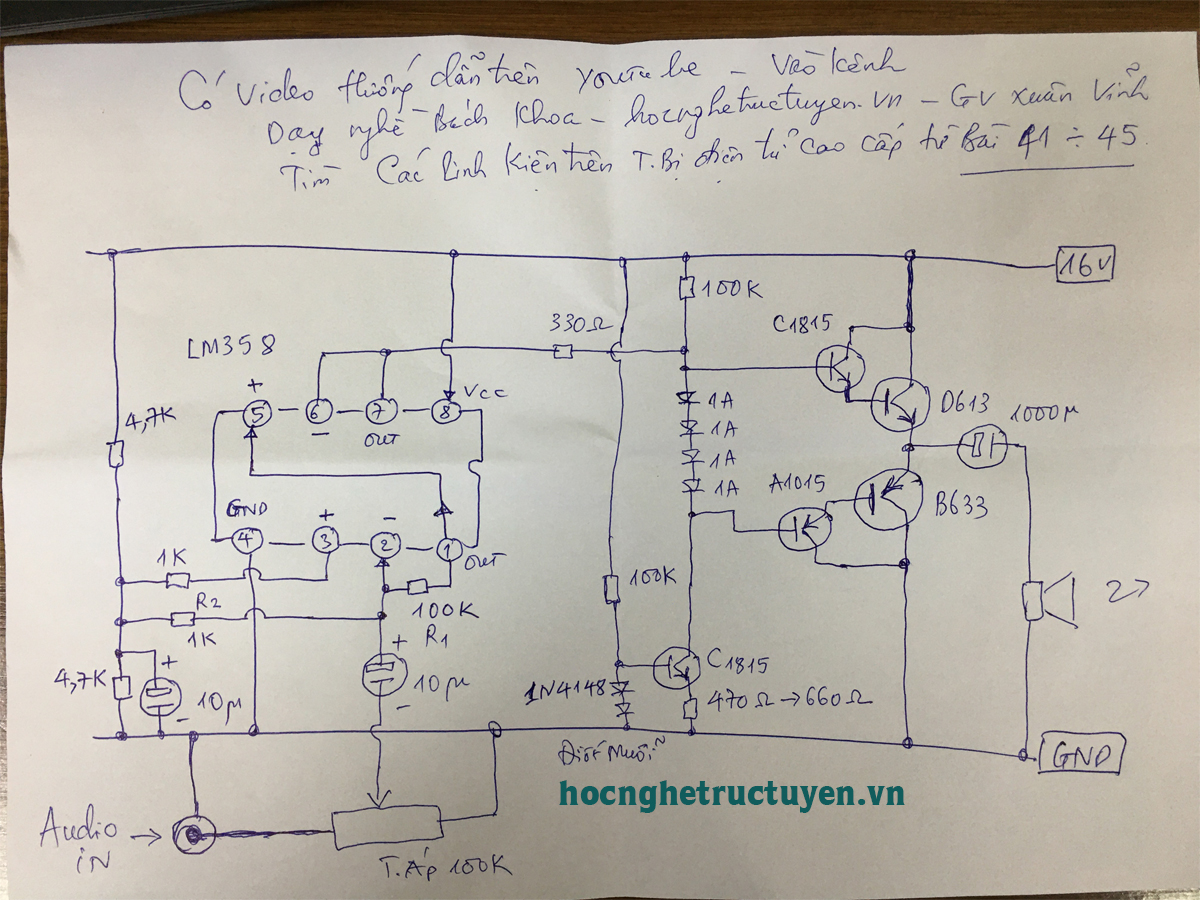 Có Video Hướng dẫn trên youtube – Vào kênh
Dạy nghề Bách Khoa – hocnghetructuyen.vn – GV Xuân Vinh
Tìm Các linh kiện trên T.Bị điện tử cao cấp từ Bài 41 ÷ 45
16V
100K
330Ω
C1815
LM358
+
5
6
7
8
Vcc
–
OUT
4,7K
1A
1A
1A
1A
D613
1000µ
A1015
B633
GND
4
+
3
–
2
1
OUT
1K
R2
1K
100K
R1
100K
+
10µ
–
4,7K
+
10µ
–
C1815
1N4148
470Ω → 660Ω
Điốt Muỗi
GND
hocnghetructuyen.vn
Audio
iN
T.Áp 100K